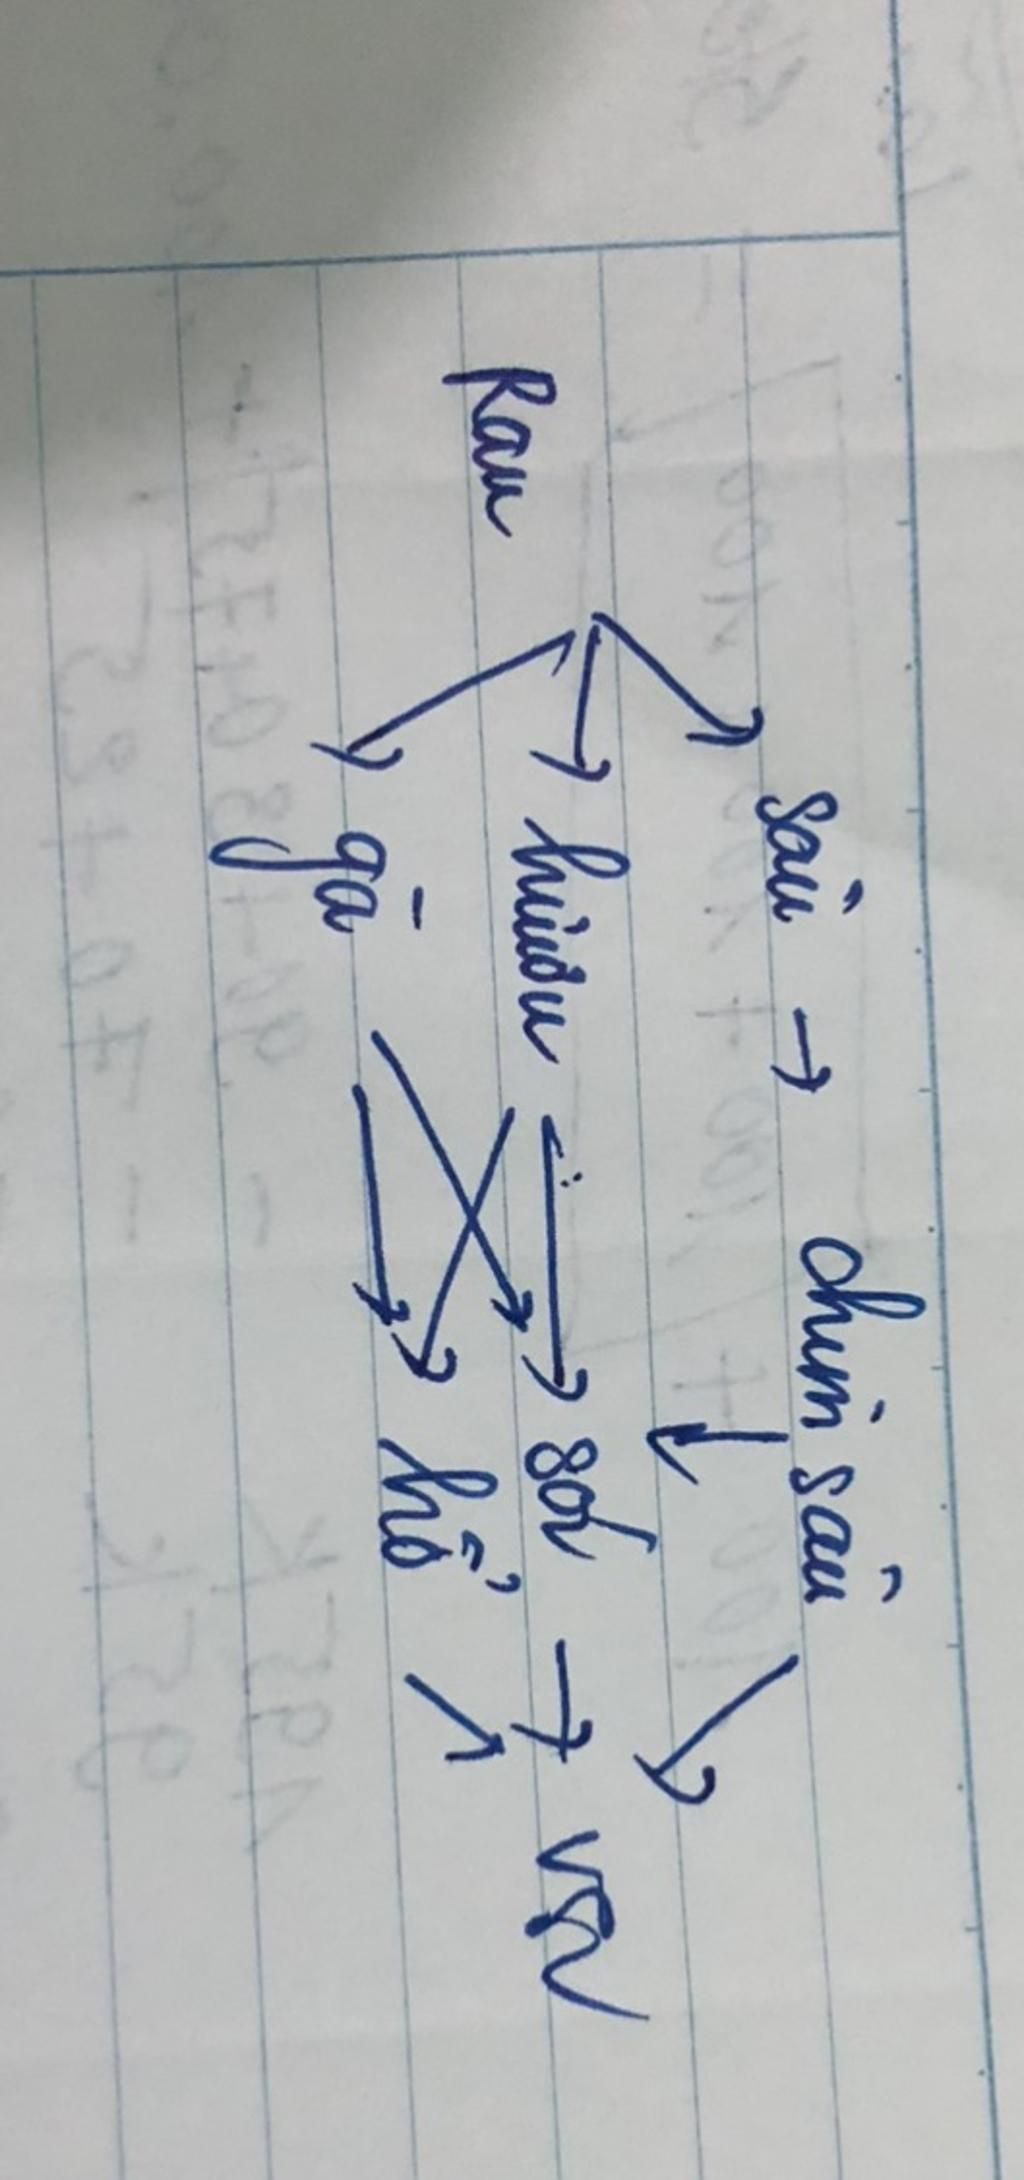 sâu → chim sâu
Rau → hươu → sói → VSV
gà → hổ